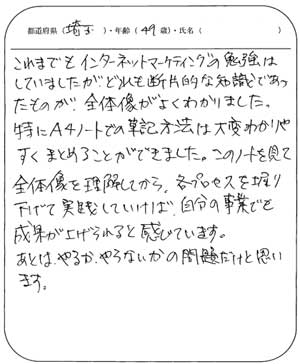 都道府県（埼玉）・年齢（49歳）・氏名（　　　）
これまでもインターネットマーケティングの勉強は
していましたがどれも断片的な知識であっ
たものが全体像がよくわかりました。
特にA4ノートでの筆記方法は大変わかりや
すくまとめることができました。このノートを見て
全体像を理解してから、各プロセスを掘り
下げて実践していけば、自分の事業でも
成果が上げられると感じています。
あとは、やるか、やらないかの問題だけと思い
ます。